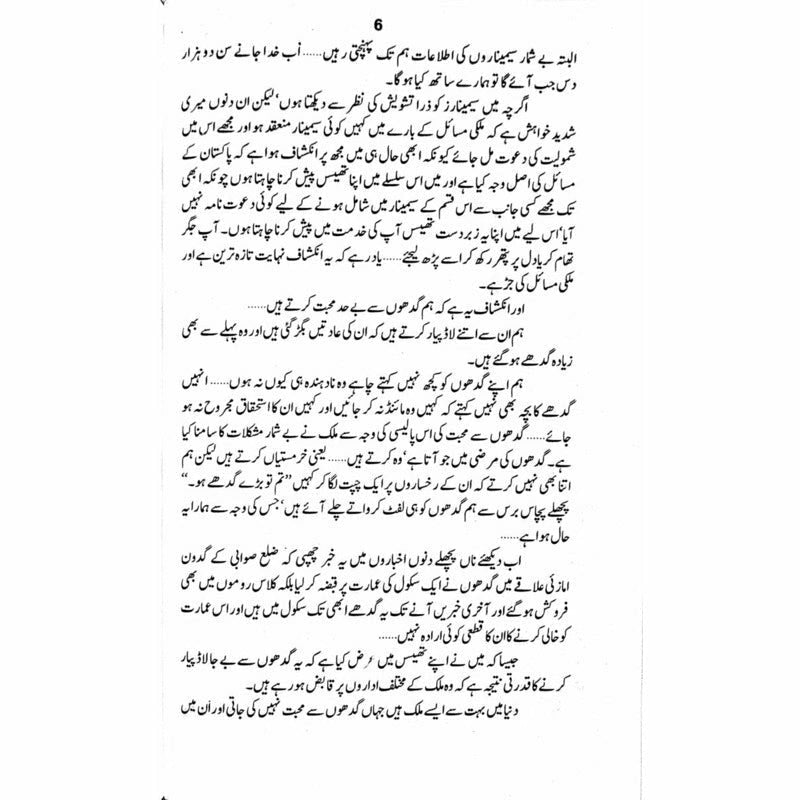 6
البتہ بے شمار سیمیناروں کی اطلاعات ہم تک پہنچتی رہیں...... اَب خدا جانے سن دو ہزار
دس جب آئے گا تو ہمارے ساتھ کیا ہو گا۔
اگرچہ میں سیمینارز کو ذرا تشویش کی نظر سے دیکھتا ہوں‘ لیکن ان دنوں میری
شدید خواہش ہے کہ ملکی مسائل کے بارے میں کہیں کوئی سیمینار منعقد ہو اور مجھے اس میں
شمولیت کی دعوت مل جائے کیونکہ ابھی حال ہی میں مجھ پر انکشاف ہوا ہے کہ پاکستان کے
مسائل کی اصل وجہ کیا ہے اور میں اس سلسلے میں اپنا تھیسس پیش کرنا چاہتا ہوں چونکہ ابھی
تک مجھے کسی جانب سے اس قسم کے سیمینار میں شامل ہونے کے لیے کوئی دعوت نامہ نہیں
آیا‘ اس لیے میں اپنا یہ زبردست تھیسس آپ کی خدمت میں پیش کرنا چاہتا ہوں۔ آپ جگر
تھام کر یا دل پر پتھر رکھ کر اسے پڑھ لیجئے...... یاد رہے کہ یہ انکشاف نہایت تازہ ترین ہے اور
ملکی مسائل کی جڑ ہے۔
اور انکشاف یہ ہے کہ ہم گدھوں سے بے حد محبت کرتے ہیں......
ہم ان سے اتنے لاڈ پیار کرتے ہیں کہ ان کی عادتیں بگڑ گئی ہیں اور وہ پہلے سے بھی
زیادہ گدھے ہو گئے ہیں۔
ہم اپنے گدھوں کو کچھ نہیں کہتے چاہے وہ نادہندہ ہی کیوں نہ ہوں...... انہیں
گدھے کا بچہ بھی نہیں کہتے کہ کہیں وہ مائنڈ نہ کر جائیں اور کہیں ان کا استحقاق مجروح نہ ہو
جائے...... گدھوں سے محبت کی اس پالیسی کی وجہ سے ملک نے بے شمار مشکلات کا سامنا کیا
ہے۔ گدھوں کی مرضی میں جو آتا ہے‘ وہ کرتے ہیں...... یعنی خرمستیاں کرتے ہیں لیکن ہم
اتنا بھی نہیں کرتے کہ ان کے رخساروں پر ایک چپت لگا کر کہیں ”تم تو بڑے گدھے ہو۔“
پچھلے پچاس برس سے ہم گدھوں کو ہی لفٹ کرواتے چلے آئے ہیں‘ جس کی وجہ سے ہمارا یہ
حال ہوا ہے......
اب دیکھئے ناں پچھلے دنوں اخباروں میں یہ خبر چھپی کہ ضلع صوابی کے گدون
امازئی علاقے میں گدھوں نے ایک سکول کی عمارت پر قبضہ کر لیا بلکہ کلاس روموں میں بھی
فروکش ہو گئے اور آخری خبریں آنے تک یہ گدھے ابھی تک سکول میں ہیں اور اس عمارت
کو خالی کرنے کا ان کا قطعی کوئی ارادہ نہیں......
جیسا کہ میں نے اپنے تھیسس میں عرض کیا ہے کہ یہ گدھوں سے بے جا لاڈ پیار
کرنے کا قدرتی نتیجہ ہے کہ وہ ملک کے مختلف اداروں پر قابض ہو رہے ہیں۔
دنیا میں بہت سے ایسے ملک ہیں جہاں گدھوں سے محبت نہیں کی جاتی اور اُن میں